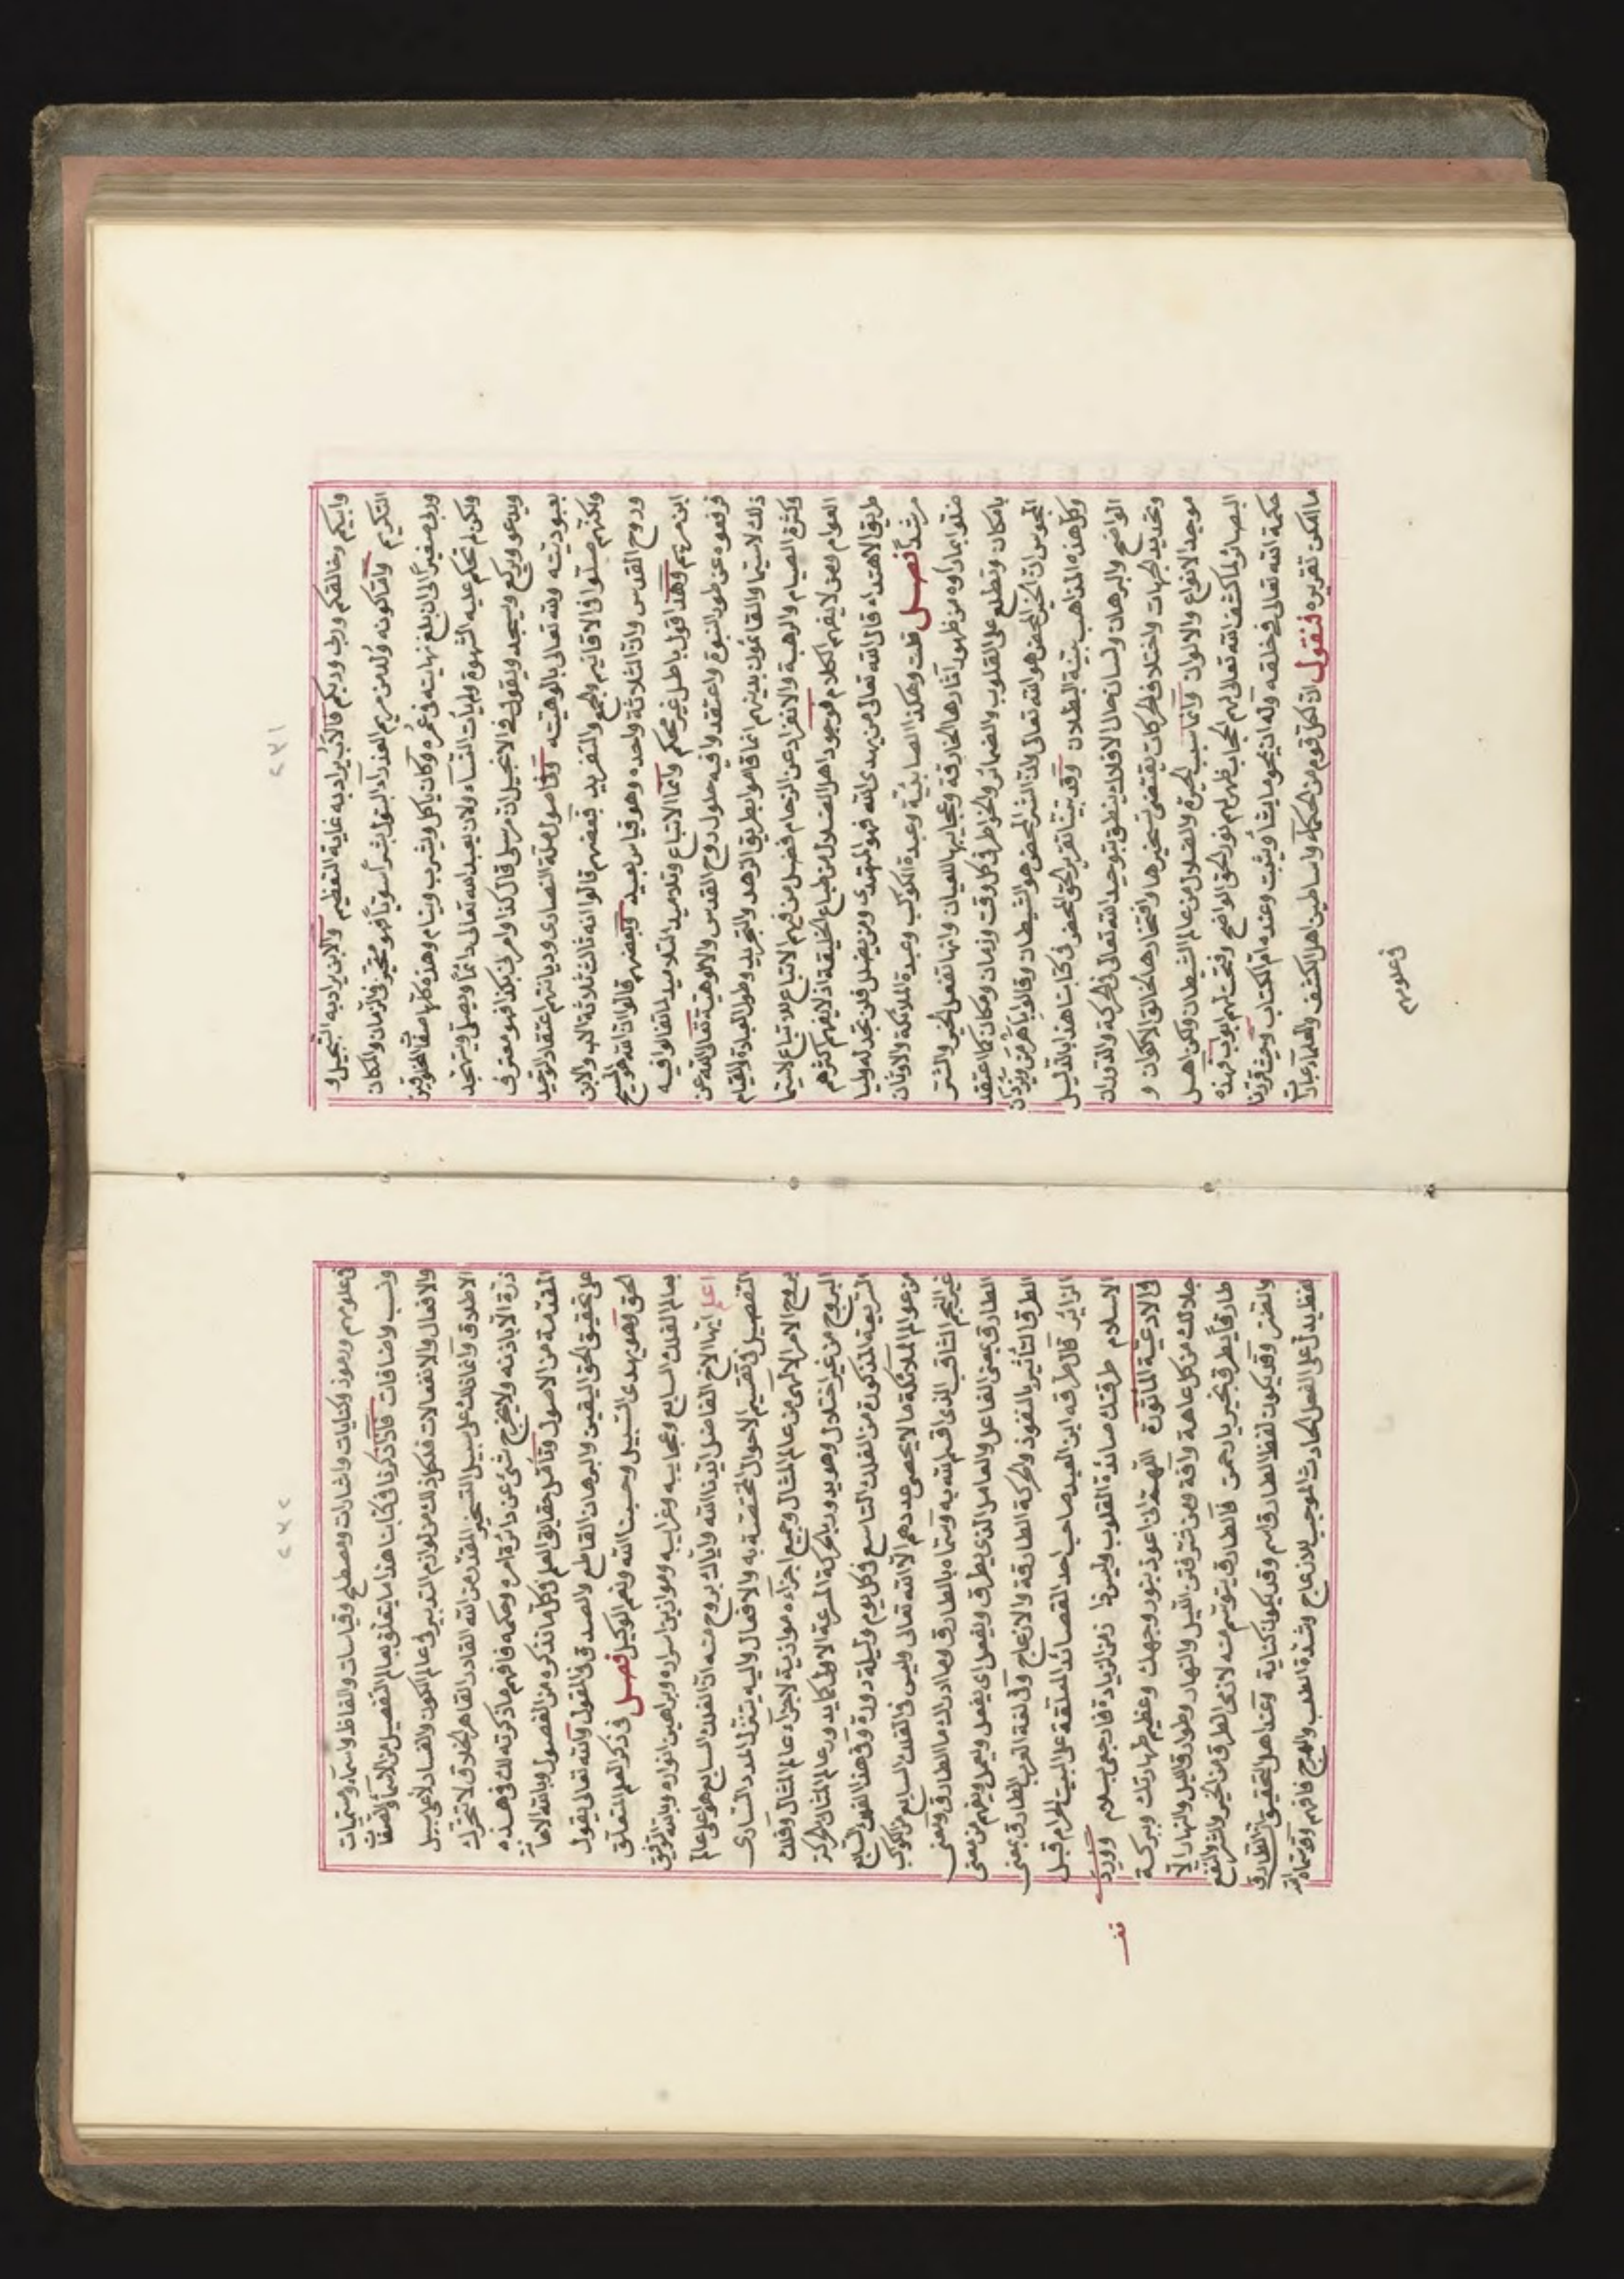 ٢٧١
وابيكم وخالقكم ورب وربكم فالاب يراد به غاية التعظيم والابن يراد به التبجيل و
التكريم واما كونه ولد من مريم العذراء البتول بشرا سويا فهو متحيز في الزمان والمكان
وربى صغيرا الى ان بلغ نهايته في عمره وكان ياكل ويشرب وينام وهذه كلها صفات المخلوقين
ولكن لم تحكم عليه الشهوة ولم يات النساء ولان يعبد الله تعالى دائما ويصلي ويتهجد
ويدعو ويركع ويسجد ويقول في الانجيل ان مرسلي قال كذا وامرني بكذا فهو معترف
بعبوديته ولله تعالى بالوهيته وفي اصول ملة النصارى وديانتهم اعتقاد التوحيد
ولكنهم ضلوا في الاقانيم والجمع والتفريد فبعضهم قالوا انه ثالث ثلاثة الاب والابن
وروح القدس وان الثلاثة واحده وهو قياس بعيد وبعضهم قالوا ان الله هو المسيح
ابن مريم وهذا قول باطل غير محكم وانما الاتباع وتلاميذ التلاميذ لما تغالوا فيه
فرفعوه عن طور النبوة واعتقدوا فيه حلول روح القدس والالوهية تعالى الله عن
ذلك لا سيما والقائمون بدينهم انما قاموا بطريق الزهد والتجريد وطول العبادة والقيام
وكثرة الصيام والرهبة والانفراد عن الزحام فضل من فيهم الاتباع للاتباع لا سيما
العوام ومن لا يفهم الكلام فوجود اهل الضلال من طباع الخليقة اذ لا يفهم اكثرهم
طريق الاهتداء قال الله تعالى من يهدي الله فهو المهتدي ومن يضلل فلن تجد له وليا
مرشدا فصل قلت وهكذا الصابئية وعبدة الكوكب وعبدة الملائكة والاوثان
ضلوا بما راوه من ظهور آثارها الخارقة وعجايبها للعيان وانها تفعل الخير والشر
بامكان وتطلع على القلوب والضمائر والخواطر في كل وقت وزمان ومكان كما اعتقد
المجوس ان الخير المحض هو الله تعالى وان الشر المحض هو الشيطان وقالوا باهرمن ويزدان
وكل هذه المذاهب بينة البطلان وقد بينا تقرير الحق المحض في كتابنا هذا بالدليل
الواضح والبرهان ولسان حال الافلاك ينطق بتوحيد الله تعالى في الحركة والدوران
وتحديد الجهات واختلاف الحركات يقتضي تسخيرها وافتخارها لخالق الاكوان و
موجد الانواع والالوان وانما سبب الحيرة والضلال من عالم الشيطان ولكن اهل
البصائر لما كشف الله تعالى لهم الحجاب ظهر لهم نور الحق الواضح وفتحت لهم ابواب فهذه
حكمة الله تعالى في خلقه وله ان يمحو ما يشاء ويثبت وعنده ام الكتاب وحيث قررنا
ما امكن تقريره فنقول ان لكل قوم من الحكماء واساطين اهل الكشف والعلماء عبارات
في علومهم
٢٧٢
في علومهم ورموز وكنايات واشارات ومصطلح وقياسات والفاظ واسماء ومسميات
ونسب واضافات فاذا ذكرنا في كتابنا هذا ما يتعلق بعالم التفصيل من الاسماء والصفات
والافعال والانفعالات فكل ذلك من لوازم التدبير في عالم الكون والفساد لا على سبيل
الاطلاق وانما ذلك على سبيل التسخير المقدر من الله القادر القاهر الخلاق لا تتحرك
ذرة الا باذنه ولا يخرج شئ عن دائرة امره وحكمه فافهم ما ذكرته لك في هذه
المقدمة من الاصول وتأمل حقايق العلم في كل ما نذكره من الفصول وبالله الاعانة
على تحقيق الحق اليقين والبرهان القاطع والصدق في القول والله تعالى يقول
الحق وهو يهدي السبيل وحسبنا الله ونعم الوكيل فصل في ذكر العلم المتعلق
بعالم الفلك السابع وعجايبه وغرايبه وموازين اسراره وبراهين انواره وبالله التوفيق
اعلم ايها الاخ الفاضل ايدنا الله واياك بروح منه ان الفلك السابع هو اعلى عالم
التفصيل في تقسيم الاحوال المختصة به والافعال واليه يتنزل المدد الساري
بروح الامر الالهي من عالم المثال وجميع اجزاءه موازية لاجزاء عالم المثال وفلك
البروج من غير اختلال وهو يدور بالحركة المسرعة الاولى كما يدور عالم المثال الحركة
السريعة المذكورة من الفلك التاسع في كل يوم وليلة دورة وفي هذا الفلك السابع
من عوالم الملائكة ما لا يحصى عددهم الا الله تعالى وليس في الفلك السابع من الكواكب
غير النجم الثاقب الذي اقسم الله به وسماه بالطارق وما ادراك ما الطارق ومعنى
الطارق بمعنى الفاعل والعامل الذي يطرق ويفعل اي يفعل ويعمل ويفهم من معنى
الطرق التأثير بالنفوذ والحركة الطارقة والازعاج وفي لغة العرب الطارق بمعنى
الزائر قال طرفه ابن العبد صاحب احد القصائد المعلقة على البيت الحرام قبل
الاسلام طرقتك صائدة القلوب وليس ذا زمن الزيارة فارجعي بسلام وورد
في الادعية المأثورة اللهم اني اعوذ بنور وجهك وعظيم طهارتك وبركة
جلالك من كل عاهة وآفة ومن شر فتن الليل والنهار وطوارق الليل والنهار الا
طارقا يطرق بخير يا رحمن فالطارق يتوسم منه لانحا الطرق من الخير والشر والنفع
والضر وقد يكون لفظ الطارق اسم وقد يكون كناية وعند اهل التحقيق ان الطارق
لفظ يدل على الفعل الحادث الموجب للازعاج وشدة الطلب والهرج فافهم وقد سماه الله
قف